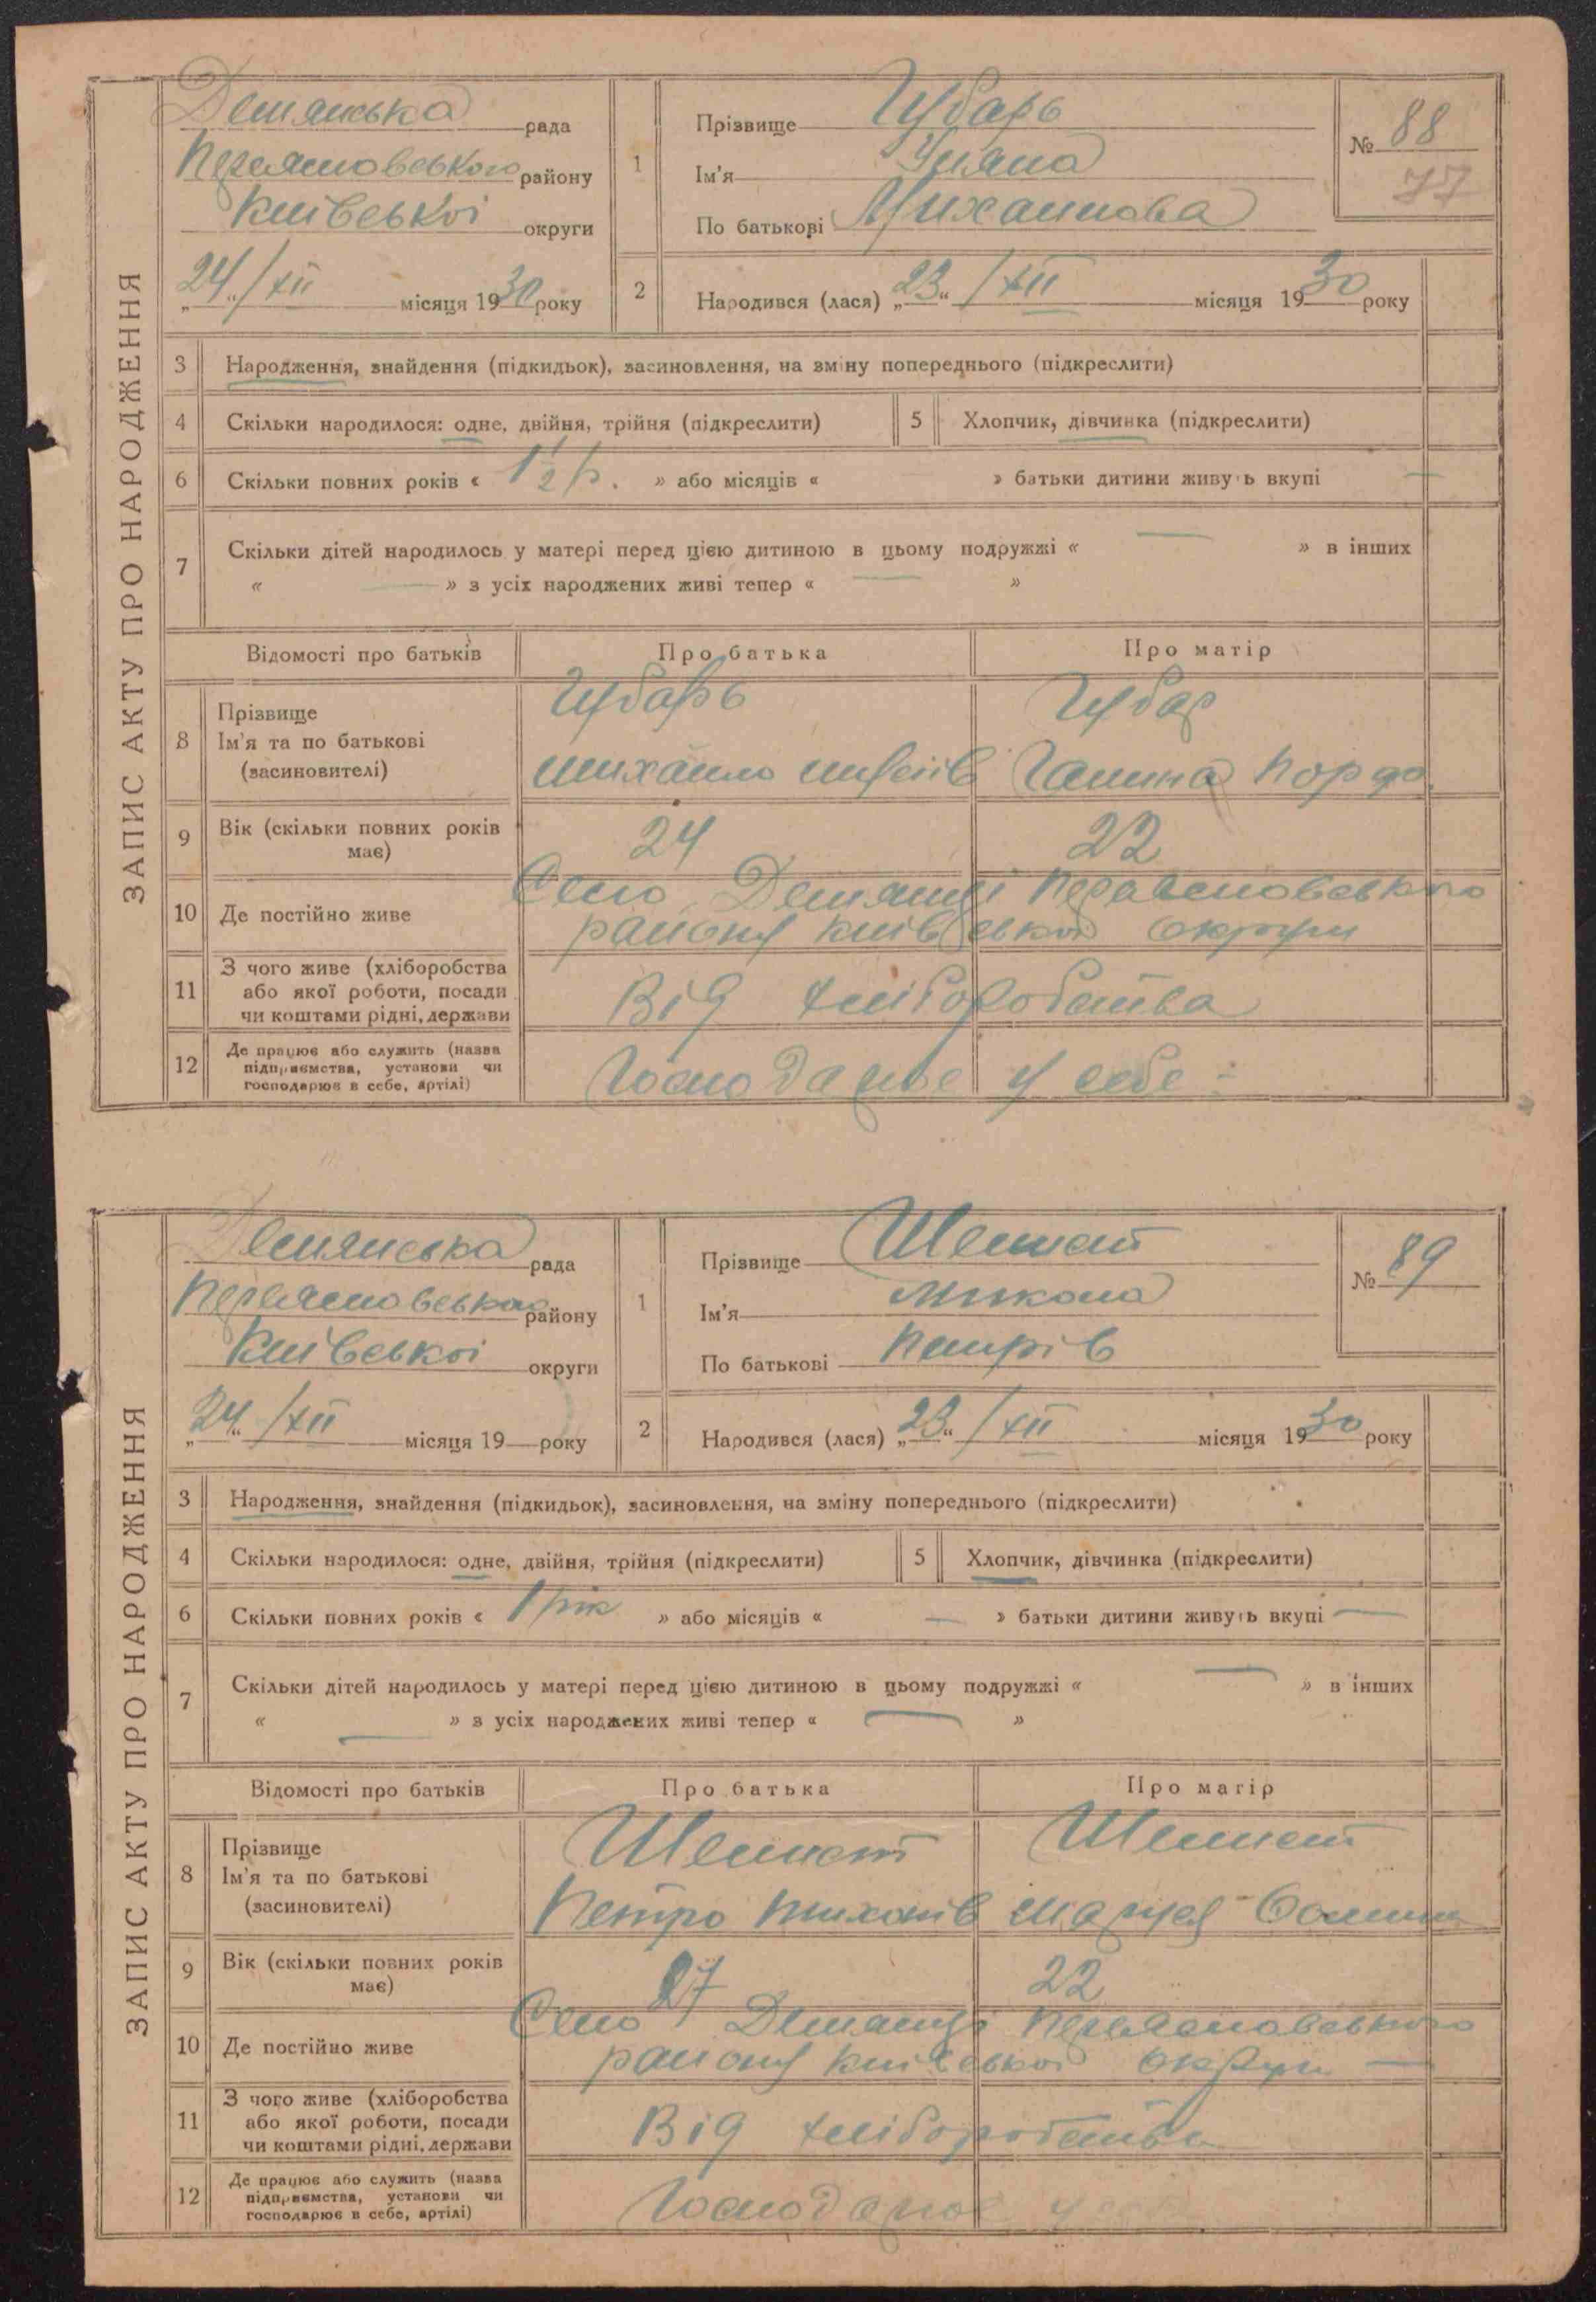 ЗАПИС АКТУ ПРО НАРОДЖЕННЯ
Демянська рада
Переяславського району
Київської округи
„24“/XII місяця 1930 року
1
Прізвище Чубарь
Ім'я Уляна
По батькові Михайлова
№ 88
77
2 Народився (лася) „23“ /XII місяця 1930 року
3 Народження, знайдення (підкидьок), засиновлення, на зміну попереднього (підкреслити)
4 Скільки народилося: одне, двійня, трійня (підкреслити)
5 Хлопчик, дівчинка (підкреслити)
6 Скільки повних років « 1½ р. » або місяців « » батьки дитини живуть вкупі —
7 Скільки дітей народилось у матері перед цією дитиною в цьому подружжі « — » в інших
« — » з усіх народжених живі тепер « — »
Відомості про батьків Про батька Про матір
8 Прізвище
Ім'я та по батькові
(засиновителі)
Чубарь
Михайло
Чубар
Ганна
9 Вік (скільки повних років
має)
24 22
10 Де постійно живе
Село Демянці Переяславського
району Київської округи
11 З чого живе (хліборобства
або якої роботи, посади
чи коштами рідні, держави
Від хліборобства
12 Де працює або служить (назва
підприємства, установи чи
господарює в себе, артілі)
Господарює у себе
ЗАПИС АКТУ ПРО НАРОДЖЕННЯ
Демянська рада
Переяславського району
Київської округи
„24“ /XII місяця 19 — року
1
Прізвище Шемет
Ім'я Микола
По батькові Петрів
№ 89
2 Народився (лася) „23“ /XII місяця 1930 року
3 Народження, знайдення (підкидьок), засиновлення, на зміну попереднього (підкреслити)
4 Скільки народилося: одне, двійня, трійня (підкреслити)
5 Хлопчик, дівчинка (підкреслити)
6 Скільки повних років « 1 рік » або місяців « — » батьки дитини живуть вкупі —
7 Скільки дітей народилось у матері перед цією дитиною в цьому подружжі « — » в інших
« — » з усіх народжених живі тепер « — »
Відомості про батьків Про батька Про матір
8 Прізвище
Ім'я та по батькові
(засиновителі)
Шемет
Петро Тихонів
Шемет
9 Вік (скільки повних років
має)
27 22
10 Де постійно живе
Село Демянці Переяславського
району Київської округи —
11 З чого живе (хліборобства
або якої роботи, посади
чи коштами рідні, держави
Від хліборобства
12 Де працює або служить (назва
підприємства, установи чи
господарює в себе, артілі)
Господарює у